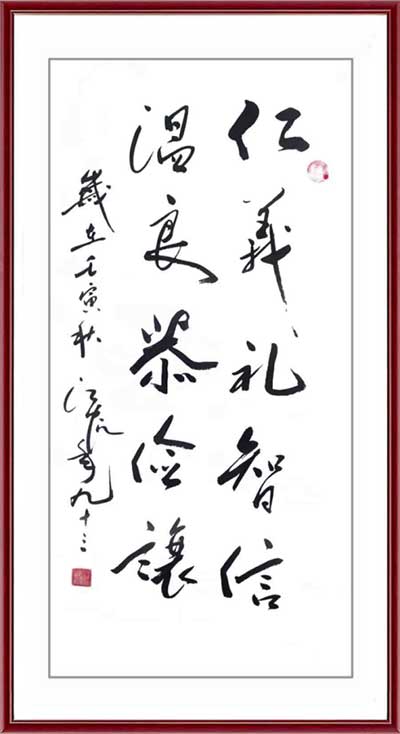 仁義礼智信
温良恭儉讓
歲在壬寅秋 江流年九十三